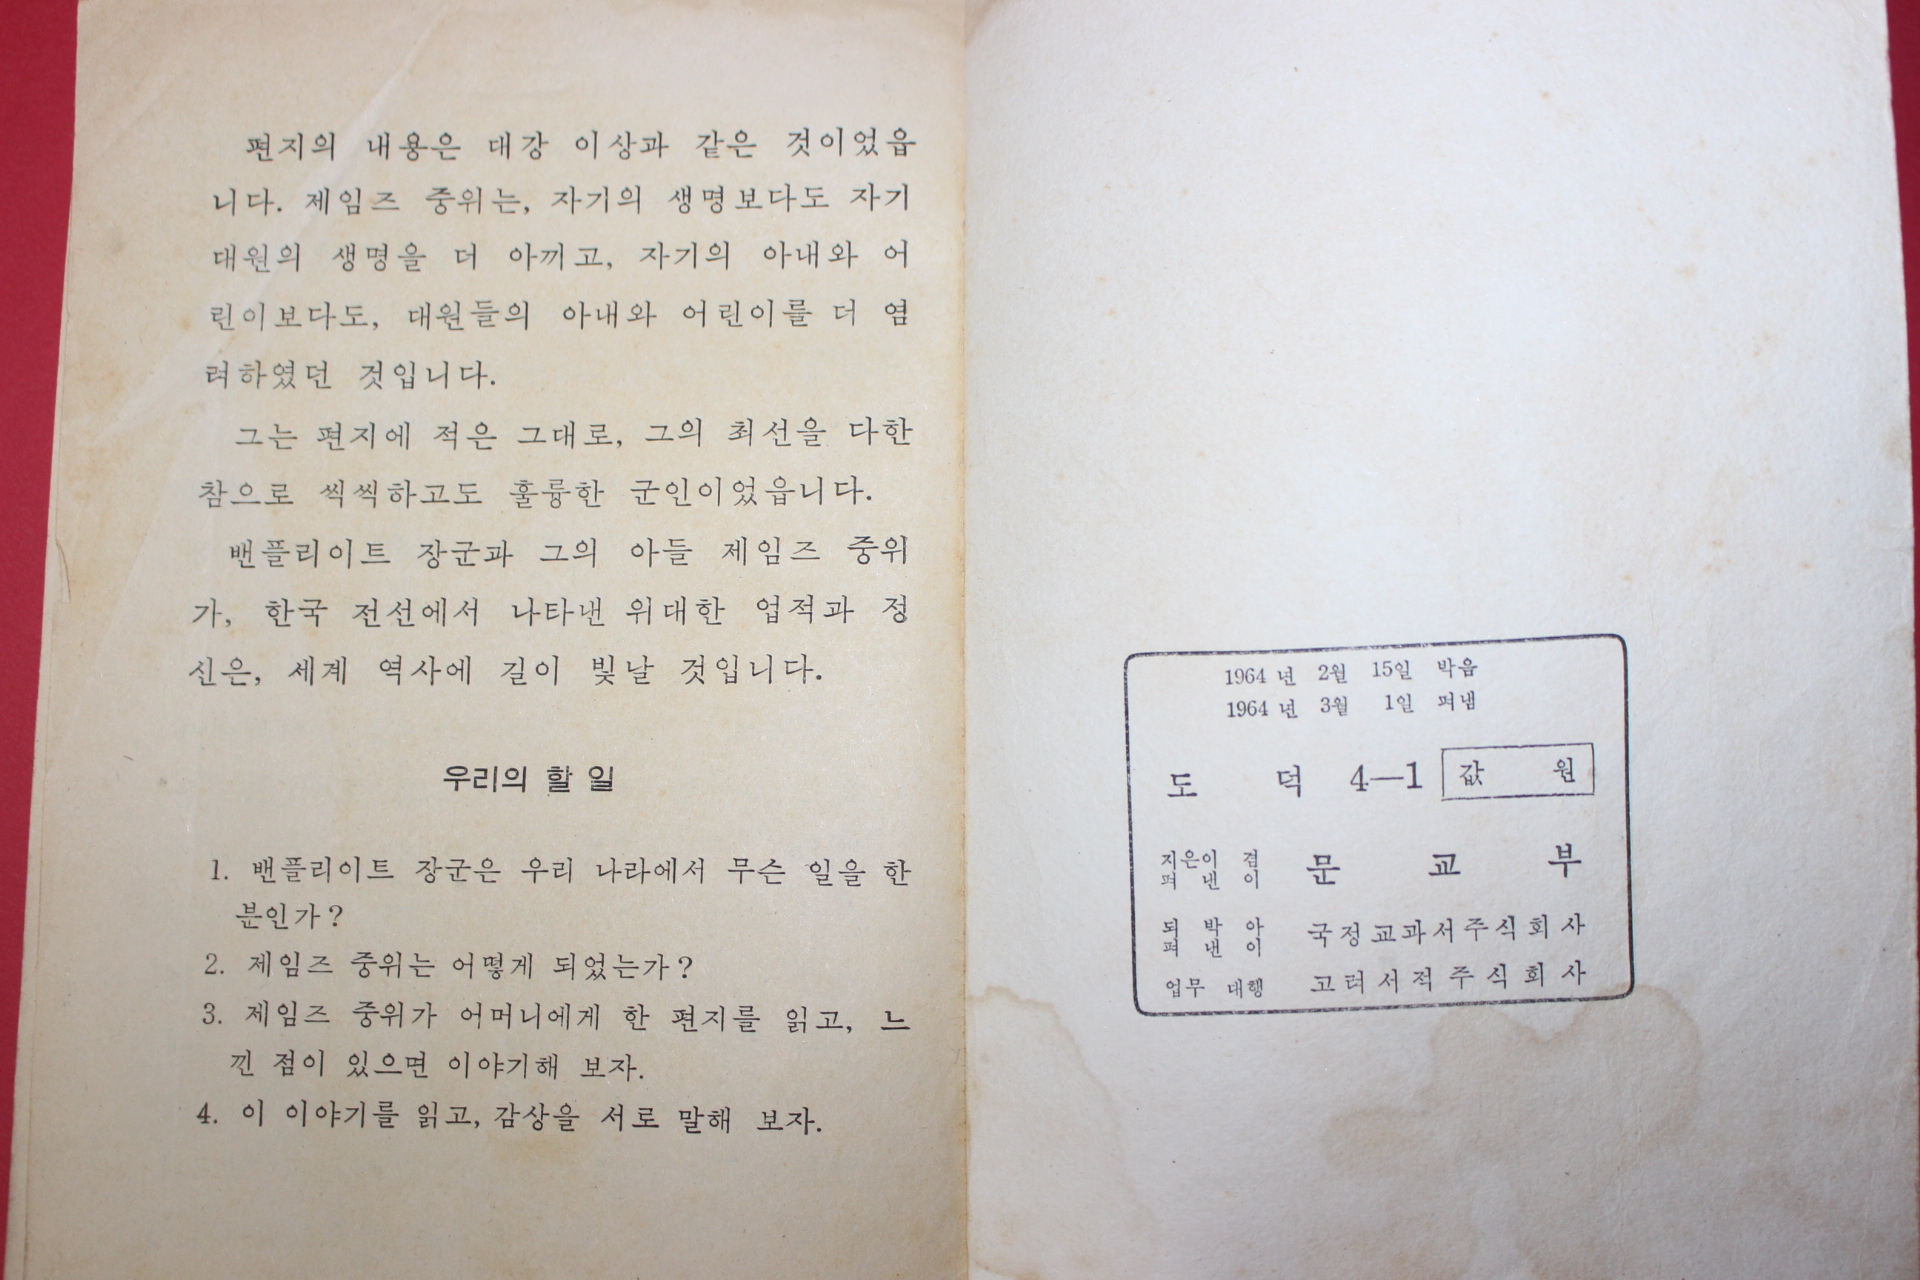 편지의 내용은 대강 이상과 같은 것이었읍
니다. 제임즈 중위는, 자기의 생명보다도 자기
대원의 생명을 더 아끼고, 자기의 아내와 어
린이보다도, 대원들의 아내와 어린이를 더 염
려하였던 것입니다.
그는 편지에 적은 그대로, 그의 최선을 다한
참으로 씩씩하고도 훌륭한 군인이었읍니다.
밴플리이트 장군과 그의 아들 제임즈 중위
가, 한국 전선에서 나타낸 위대한 업적과 정
신은, 세계 역사에 길이 빛날 것입니다.
우리의 할 일
1. 밴플리이트 장군은 우리 나라에서 무슨 일을 한
분인가?
2. 제임즈 중위는 어떻게 되었는가?
3. 제임즈 중위가 어머니에게 한 편지를 읽고, 느
낀 점이 있으면 이야기해 보자.
4. 이 이야기를 읽고, 감상을 서로 말해 보자.
1964년 2월 15일 박음
1964년 3월 1일 펴냄
도 덕 4—1 값 원
지은이 겸
펴 낸 이 문 교 부
되 박 아
펴 낸 이 국정교과서주식회사
업무 대행 고려서적주식회사